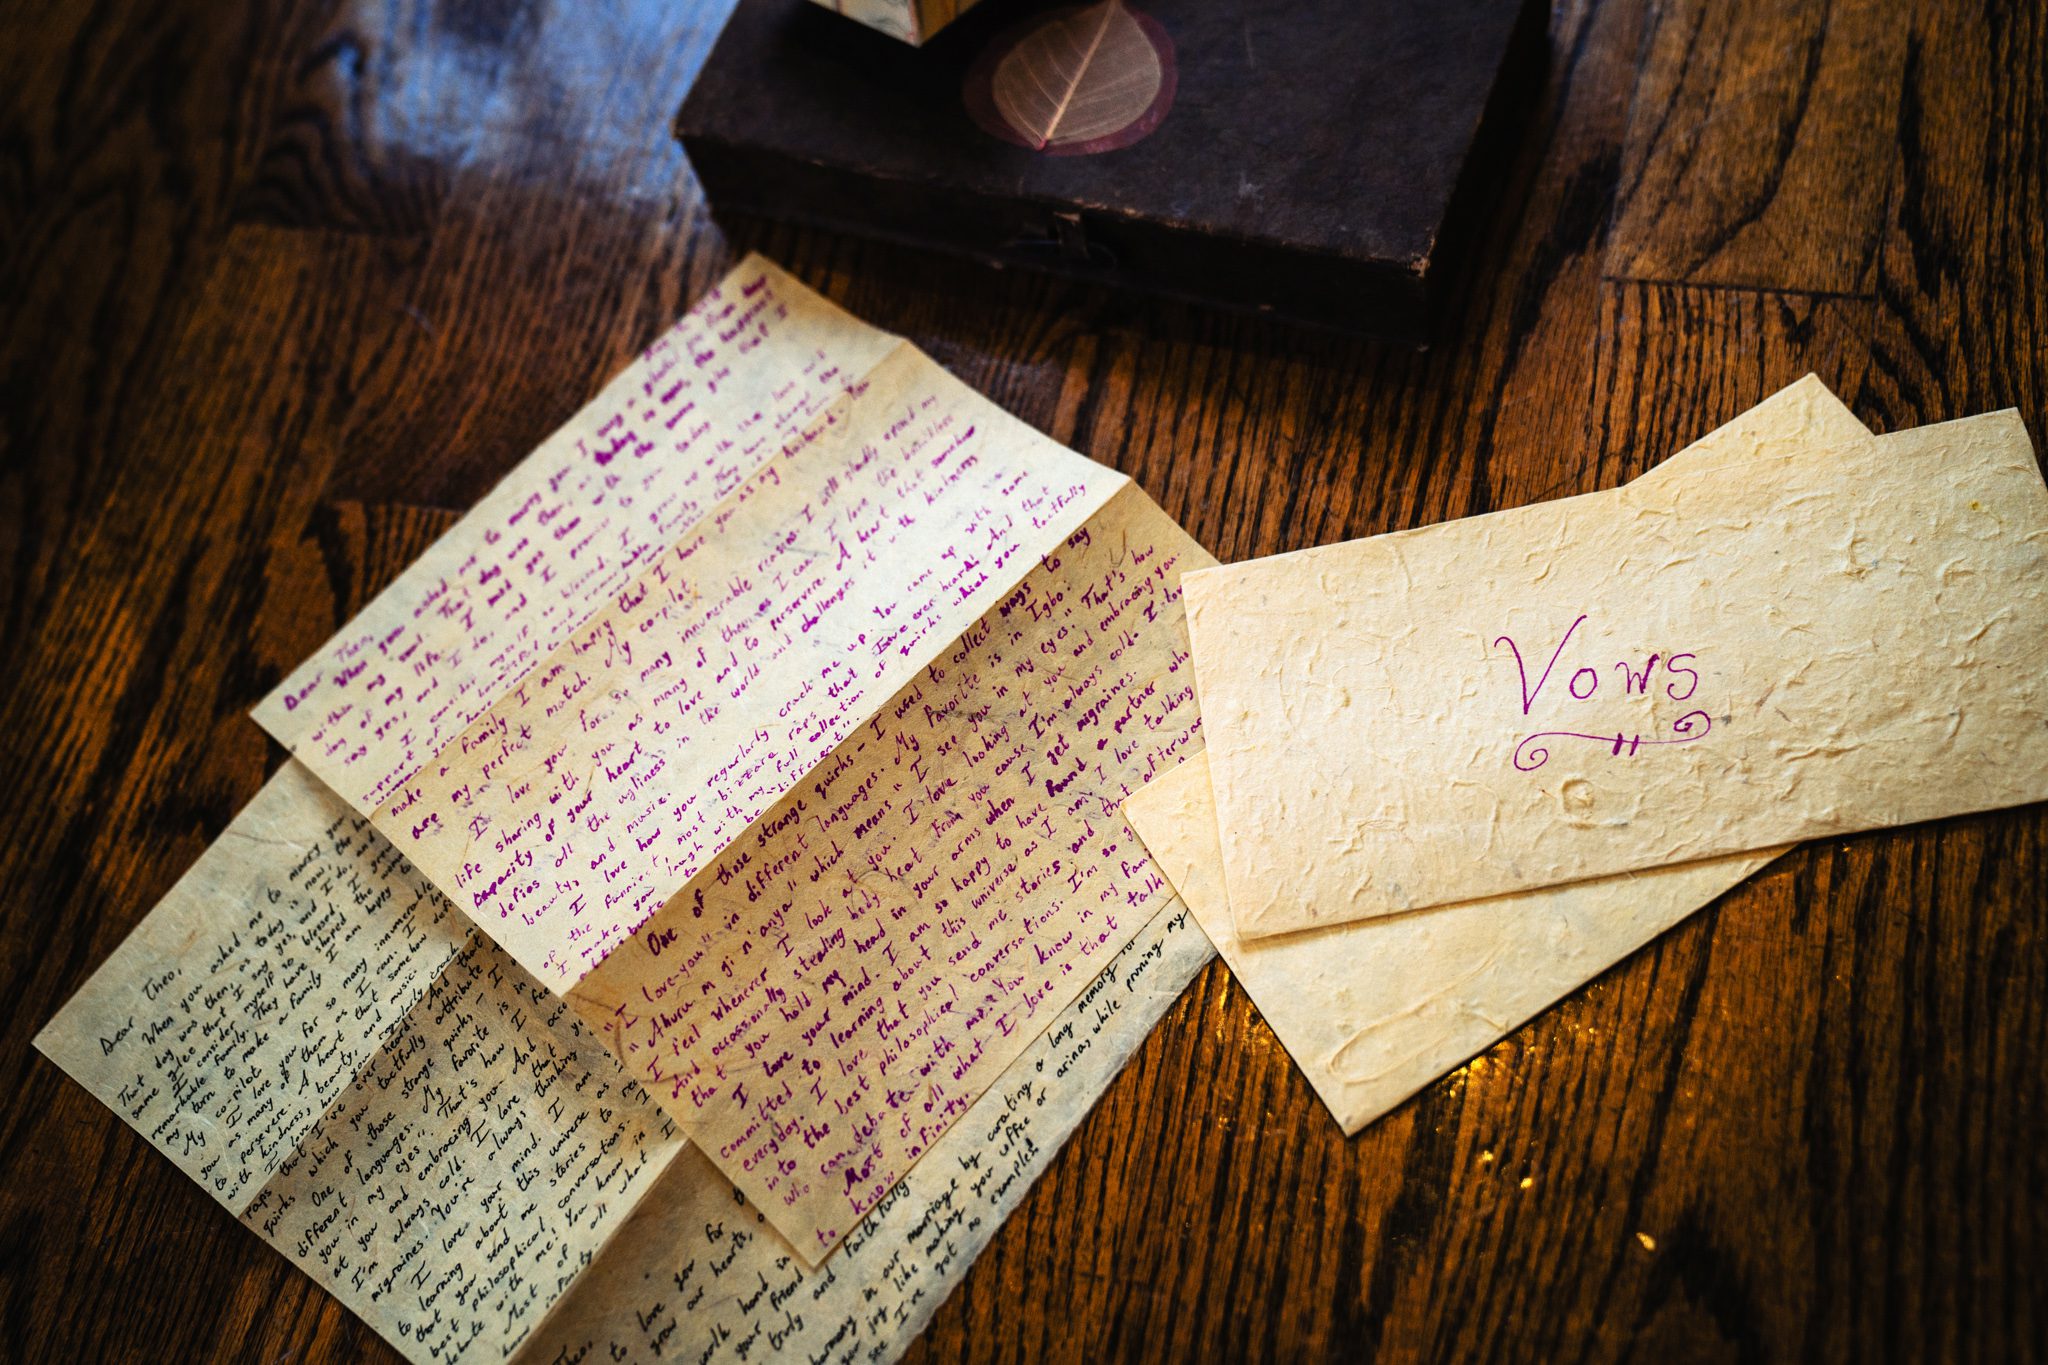 Vows
Dear Theo,
When you asked me to marry you I
within my soul. That day was then, as today is now, the happiest
day of my life. I said yes then with the same glee that I
say yes, and I do, and I promise to you today
I consider myself so blessed. I grew up with the love and
support of a family. They have shaped the
woman you have come to know
make a family I am happy that I have you as my husband. You
are my perfect match. My co-pilot.
I love you for so many innumerable reasons. I will gladly spend my
life sharing with you as many of them as I can. I love the boundless
capacity of your heart to love and to persevere. A heart that somehow
defies all the ugliness in the world and challenges it with kindness,
beauty, and music.
I love how you regularly crack me up. You came up with some
of the funniest, most bizzare raps that I've ever heard. And that
I make you laugh with my full collection of quirks which you tactfully
attribute to me being "different".
One of those strange quirks - I used to collect ways to say
"I love-you" in different languages. My favorite is in Igbo:
"Ahuru m gi n'anya" which means "I see you in my eyes." That's how
I feel whenever I look at you. I love looking at you and embracing you.
And occasionally stealing body heat from you cause I'm always cold. I love
that you hold my head in your arms when I get migraines.
I love your mind. I am so happy to have found a partner who
committed to learning about this universe as I am. I love talking
everyday. I love that you send me stories and that afterwar
into the best philosophical conversations. I'm so g
who can debate with me. You know in my fam
Most of all what I love is that talk
to know infinity.
Dear Theo,
When you asked me to marry you
That day was then, as today is now, the ha
same glee that I say yes, and I do, and
I consider myself so blessed. I grew
remarkable family. They have shaped the woman
my turn to make a family I am happy to
My co-pilot
I love you for so many innumerable
you as many of them as I can. I lov
to persevere. A heart that somehow defi
with kindness, beauty, and music.
I love how you regularly crack m
raps that I've ever heard. And that
quirks which you tactfully attribute
One of those strange quirks, - I
different languages. My favorite is in
you in my eyes", That's how I fee
at you and embracing you. And occa
I'm always cold. I love that yo
migraines. You're always thinking
I love your mind. I am s
to learning about this universe as
that you send me stories to rea
best philosophical conversations. I
debate with me! You know in
Most of all what I
know infinity.
Theo,
to love you for
grow our hearts,
walk hand in
your friend
truly and faithfully.
harmony in our marriage by curating a long memory for
your joy like making your coffee or arinas while pruning my
see I've got no examples!